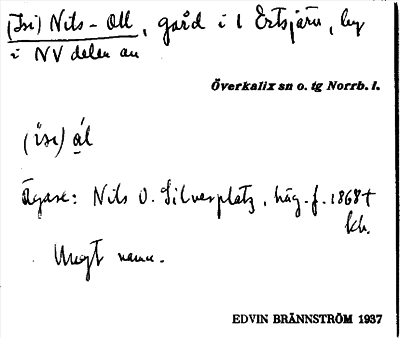 (Isi) Nils-Oll, gård i l Ertsjärv, by
i NV delen av
Överkalix sn o. tg Norrb. l.
(isi) ål
Ägare: Nils O. Silverplatz, häg. f. 1868 +
kh.
Ungt namn.
EDVIN BRÄNNSTRÖM 1937